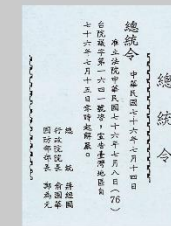 總統令
總統令 中華民國七十六年七月十四日
准立法院中華民國七十六年七月八日(76)
台院議字第一六四一號咨，宣告臺灣地區自
七十六年七月十五日零時起解嚴。
總統 蔣經國
行政院院長 俞國華
國防部部長 鄭為元